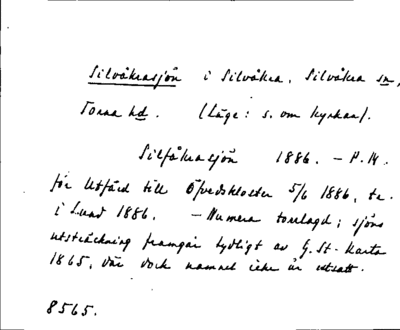 Silvåkrasjön i Silvåkra, Silvåkra sn,
Torna hd. (Läge: s. om kyrkan).
Silfåkrasjön 1886. – P. M.
för Utfärd till Öfvedskloster 5/6 1886, tr.
i Lund 1886. – Numera torrlagd; sjöns
utsträckning framgår tydligt av G. St. Karta
1865, där dock namnet icke är utsatt.
8565.